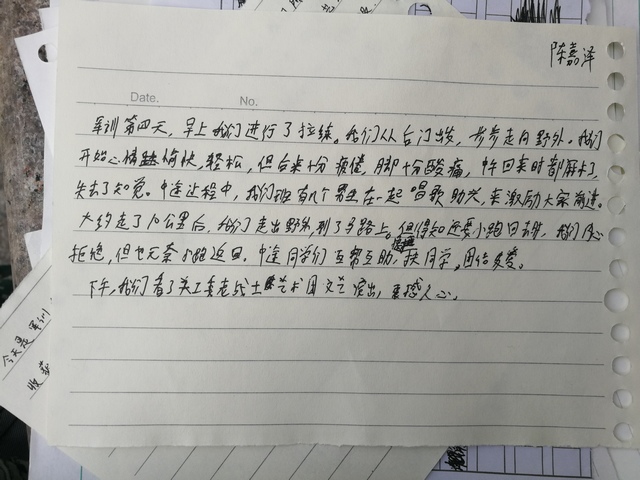 陈嘉泽
Date. No.
军训第四天，早上我们进行了拉练。我们从后门出发，步步走向野外。我们
开始心情愉快，轻松，但后来十分疲倦，脚十分酸痛，中午回来时都麻木了，
失去了知觉。中途过程中，我们班有几个男生在一起唱歌助兴，来激励大家前进。
大约走了10公里后，我们走出野外到了马路上。但得知还要小跑回去时，我们内心
拒绝，但也无奈小跑返回。中途同学们互帮互助，扶同学，团结友爱。
下午，我们看了关工委老战士艺术团文艺演出，感人心。
今天是军训
收获